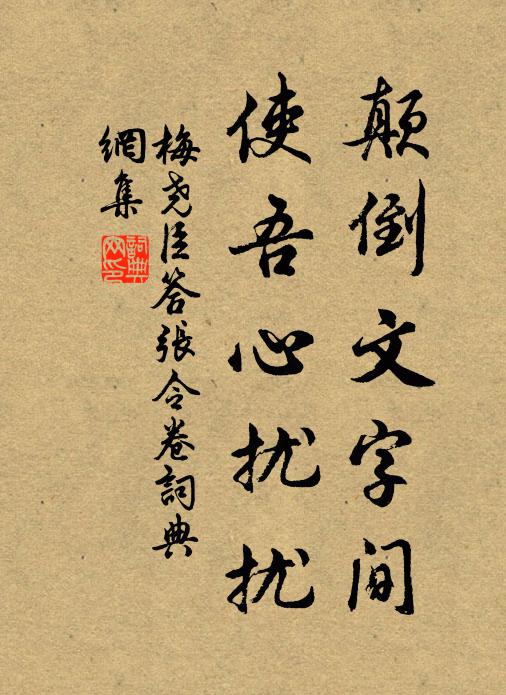 颠倒文字间
使吾心扰扰
梅尧臣答張令卷詞典
網集
詞典
网印